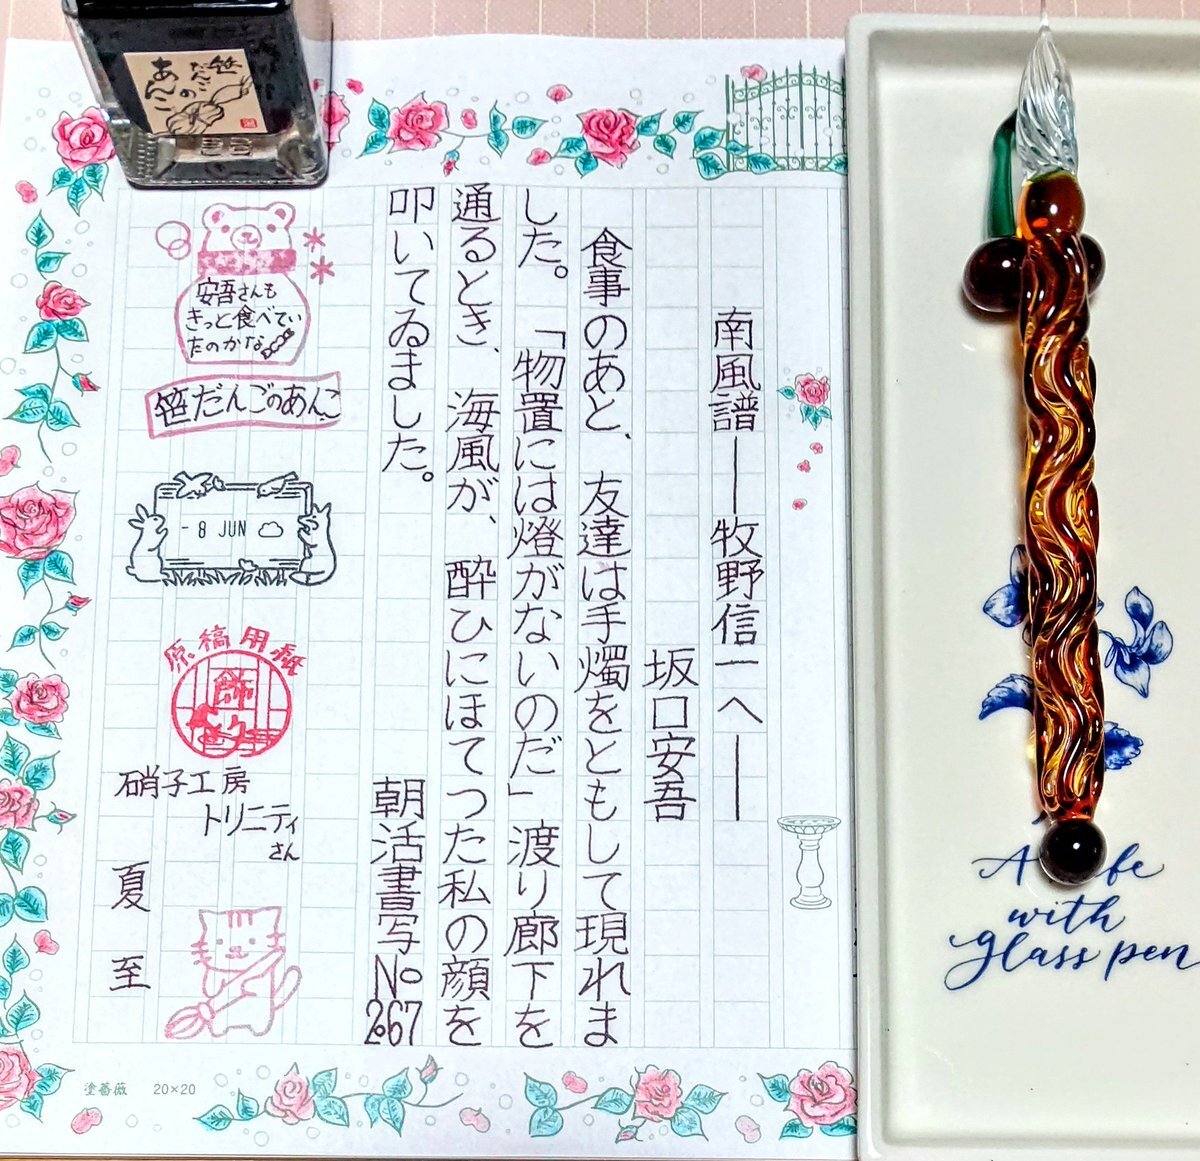 南風譜――牧野信一へ――
坂口安吾
食事のあと、友達は手燭をともして現れま
した。「物置には燈がないのだ」渡り廊下を
通るとき、海風が、酔ひにほてつた私の顔を
叩いてゐました。
朝活書写No.267
笹
だんごの
あんこ
安吾さんも
きっと食べてい
たのかな
笹だんごのあんこ
- 8 JUN
原稿用紙
硝子工房
トリニティ
さん
夏至
塗薔薇 20×20
with
glass pen